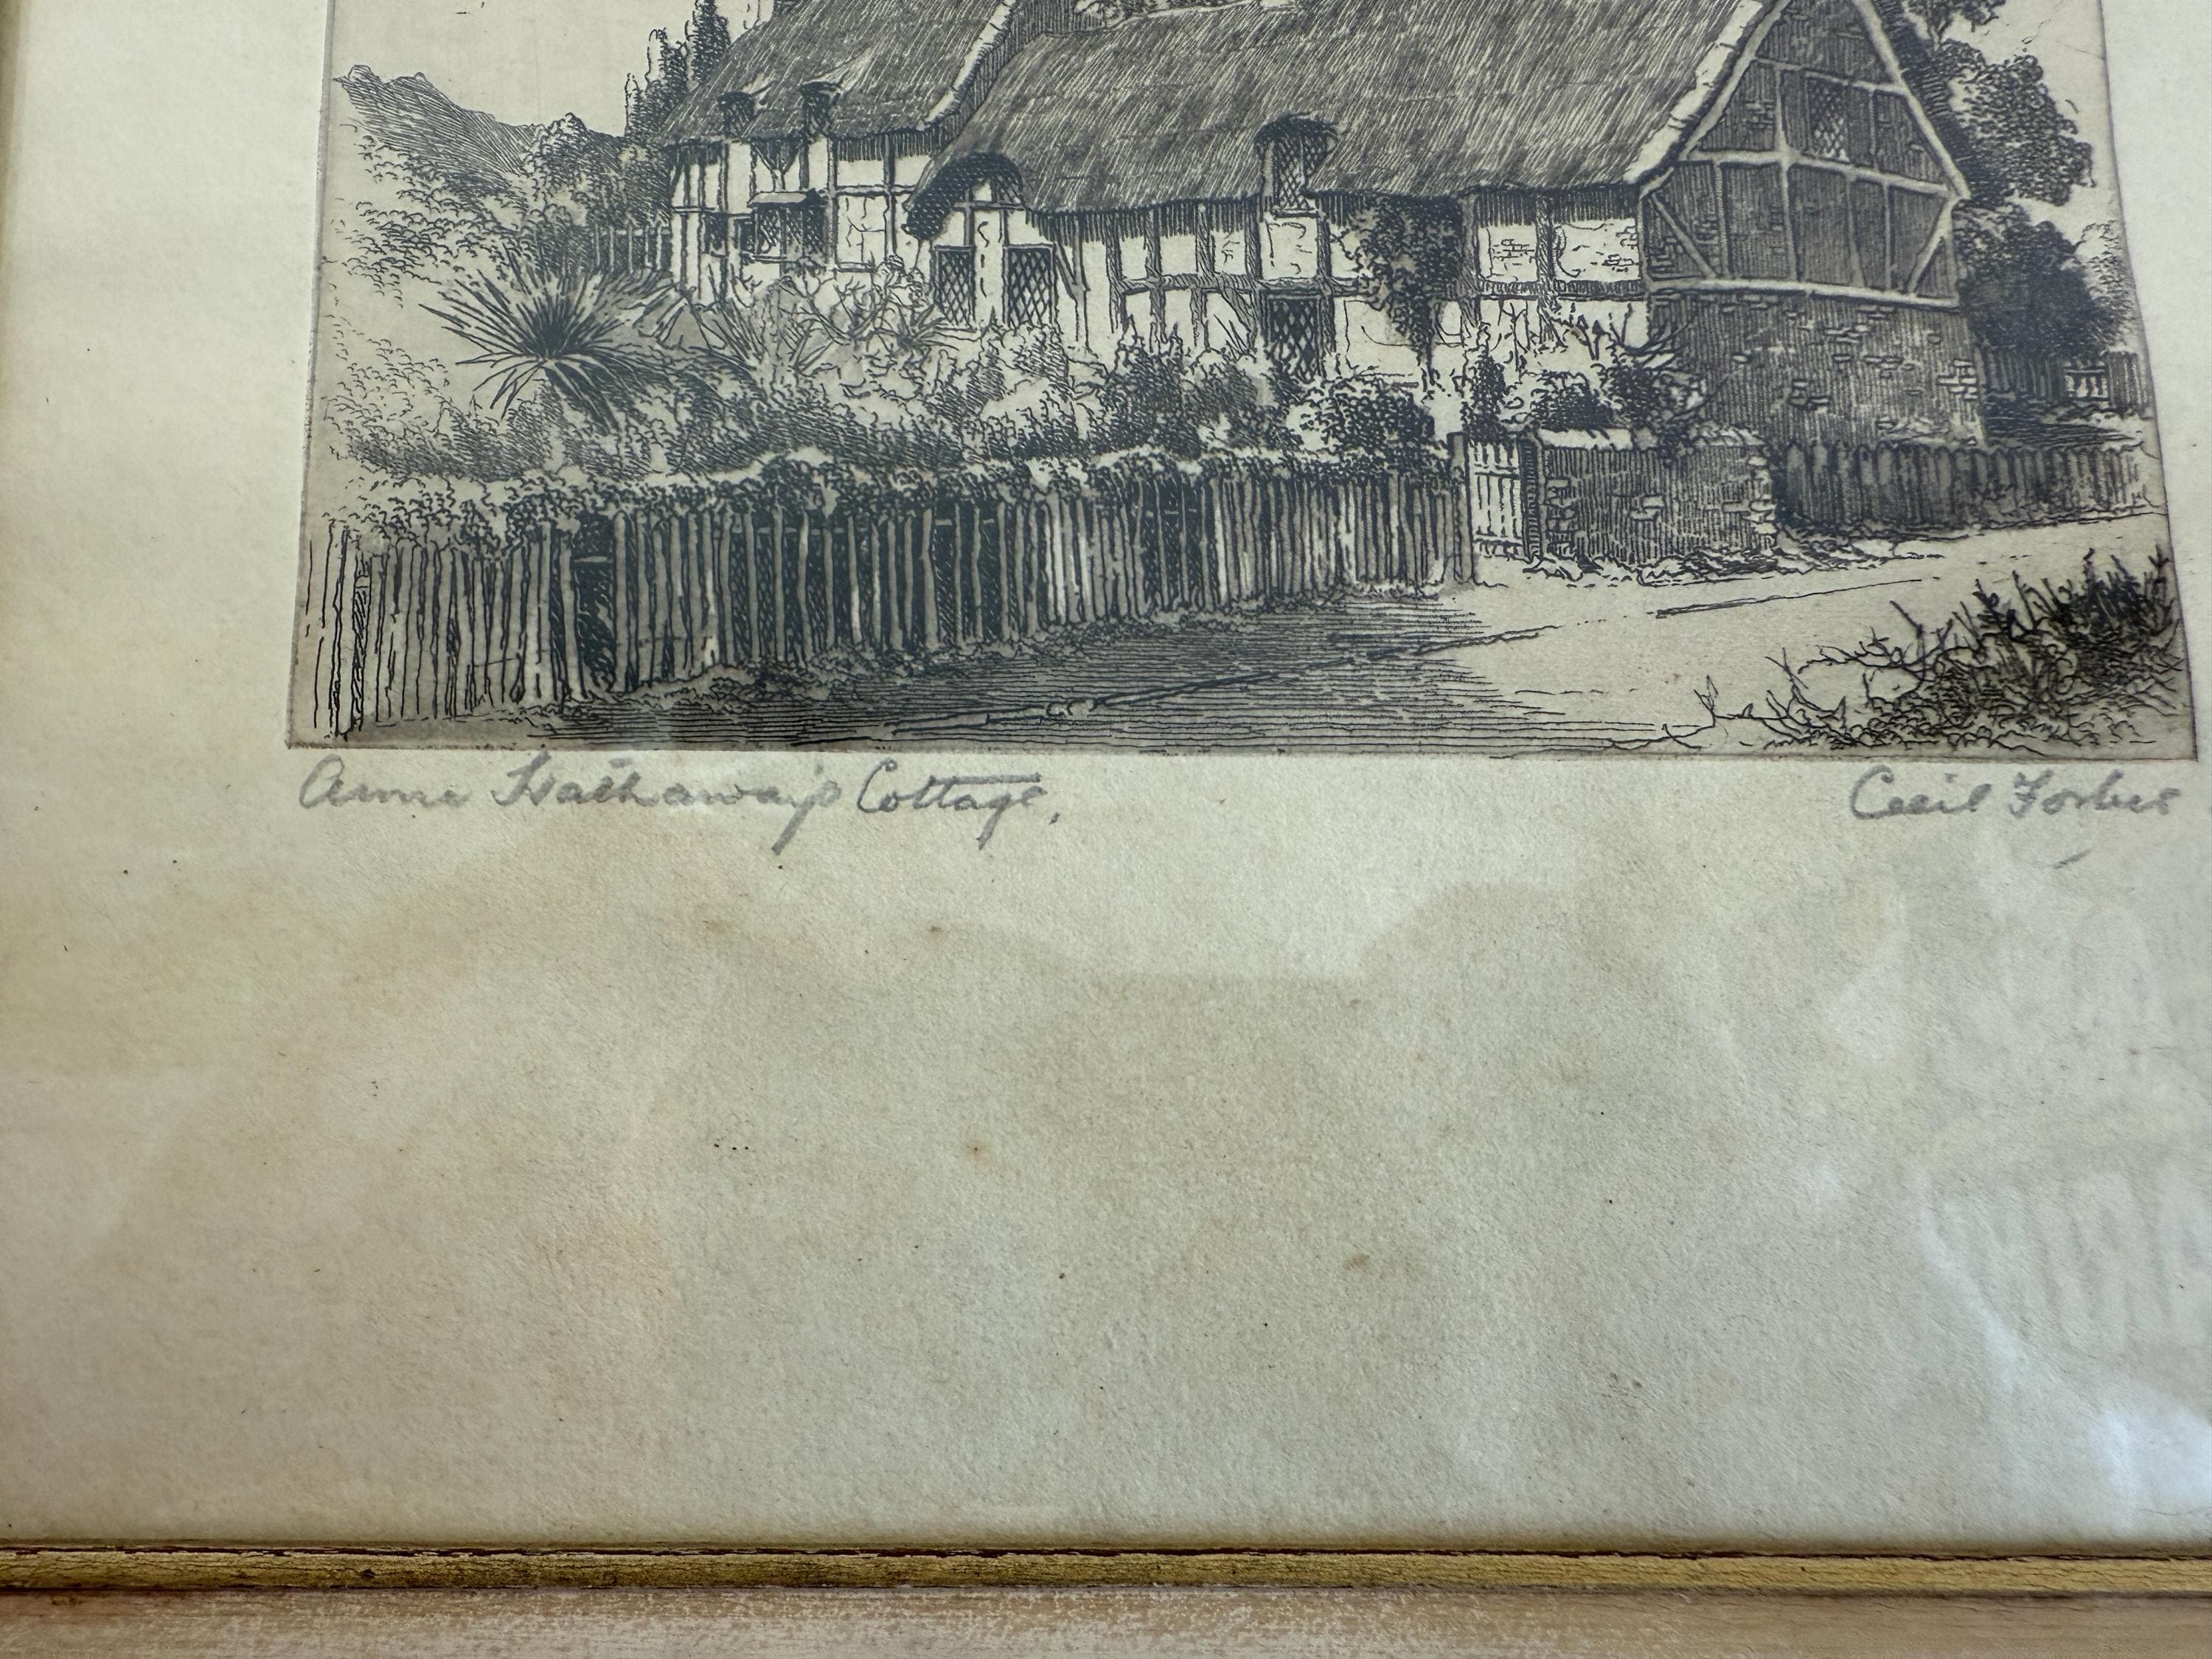 Anne Hathaway's Cottage,
Cecil Forbes